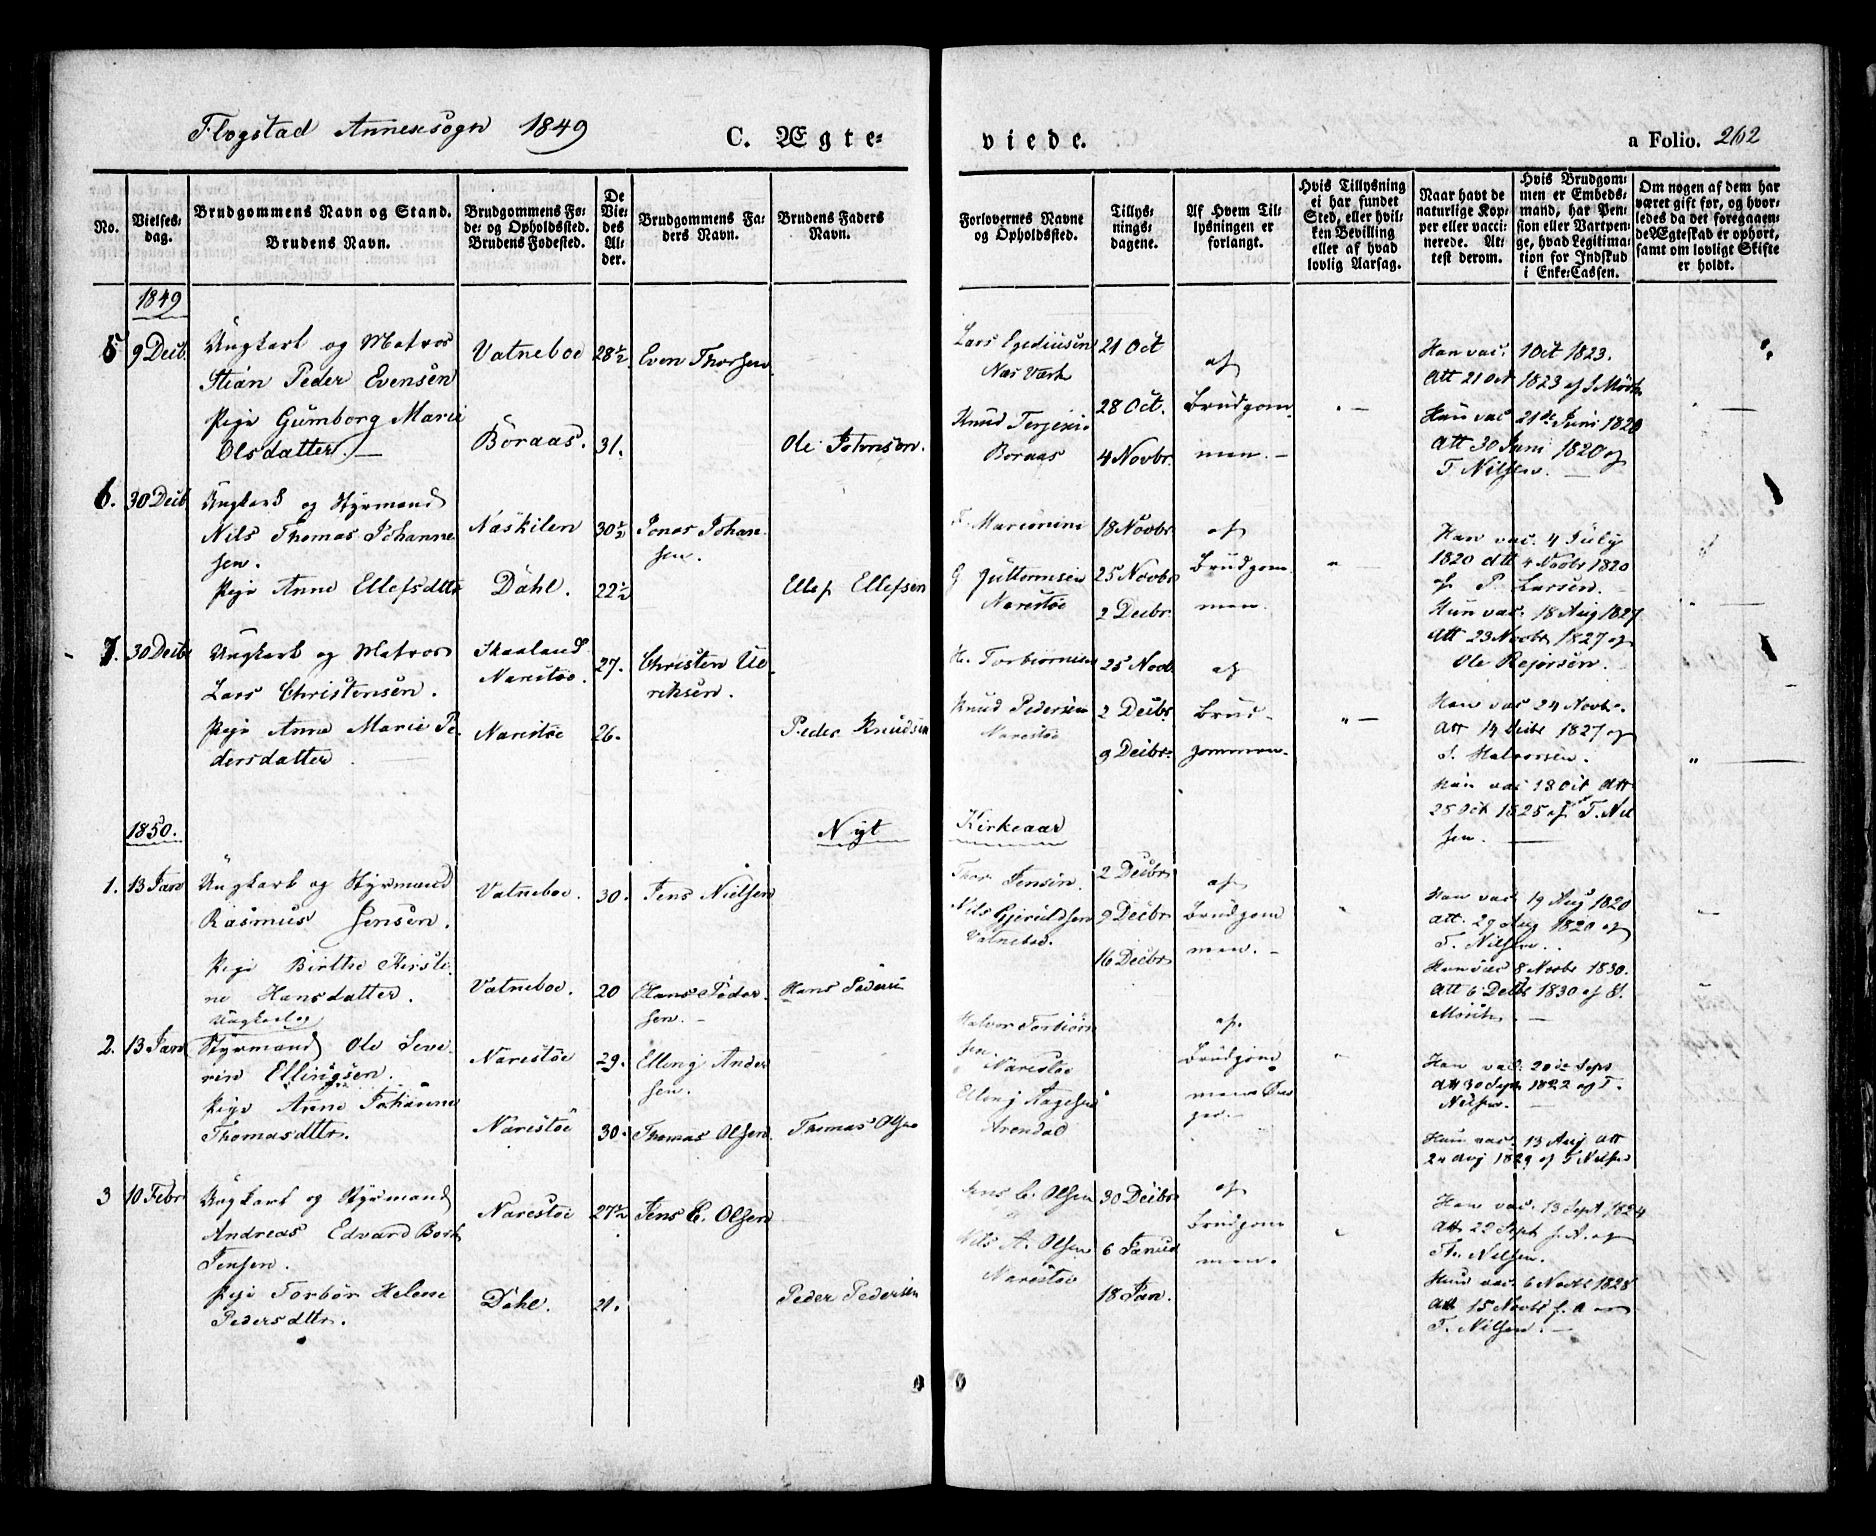 Flogstad Annexsogn 1849
C. Ægte-
viede.
a Folio. 262
No.
Vielses-
dag.
Brudgommens Navn og Stand.
Brudens Navn.
Brudgommens Fø-
de- og Opholdssted.
Brudens Fødested.
De
Vie-
des
Al-
der.
Brudgommens Fa-
ders Navn.
Brudens Faders
Navn.
Forlovernes Navne
og Opholdssted.
Tillys-
nings-
dagene.
Af Hvem Til-
lysningen er
forlangt.
Hvis Tillysning
ei har fundet
Sted, eller hvil-
ken Bevilling
eller af hvad
lovlig Aarsag.
Naar havt de
naturlige Kop-
per eller vacci-
nerede. At-
test derom.
Hvis Brudgom-
men er Embeds-
mand, har Pen-
sion eller Vartpen-
ge, hvad Legitima-
tion for Indskud
i Enke-Cassen.
Om nogen af dem har
været gift før, og hvor-
ledes da det foregaaen-
de Ægteskab er ophørt,
samt om lovligt Skifte
er holdt.
1849
5 9 Decb.
Ungkarl og Matros
Stian Peder Evensen
Pige Gumborg Marie
Olsdatter.
Vatneboe
Boraas.
28½
31.
Even Thorsen
Ole Johnsen.
Lars Egediusen
Næs Værk
Knud Terjesen
Boraas
21 Oct
28 Oct.
4 Novbr.
af
Brudgom
men.
Han vac. 1 Oct 1823.
Att 21 Oct 1823 af S Mörch
Hun vac 21de Juni 1820
Att 30 Juni 1820 af
T Nilsen.
6. 30 Decb.
Ungkarl og Styrmand
Nils Thomas Johanne
sen.
Pige Anne Ellefsdttr
Naskilen
Dahl.
30½
22½
Jonas Johan-
sen.
Ellef Ellefsen
G Guttormsen
Narestøe
18 Novbr
25 Novbr
2 Decbr.
af
Brudgom
men.
Han vac. 4 July
1820 Att 4 Novbr 1820
af P. Larsen.
Hun vac. 18 Aug 1827
Att 23 Novbr 1827 af
Ole Rejersen.
7. 30 Decbr
Ungkarl og Matros
Lars Christensen.
Pige Anne Marie Pe-
dersdatter
Skaaland
Narestøe.
Narestøe
27.
26.
Christen Ue-
riksen.
Peder Knudsen
H. Torbiørnsen
Knud Pedersen
Narestøe
25 Nov.
2 Decbr
9 Decbr.
af
Brud-
gommen.
Han vac 24 Novbr.
Att 14 Decbr 1827 af
S. Halvorsen.
Hun vac 13 Oct Att
25 Oct 1825 af T. Nil
sen.
1850.
Nyt
Kirkeaar
1. 13 Jan
Ungkarl og Styrmand
Rasmus Jensen.
Pige Birthe Kirsti-
ne Hansdatter.
Vatneboe.
Vatneboe.
30.
20
Jens Nielsen
Hans Peder-
sen.
Hans Pedersen
Thor Jensen.
Nils Gjeruldsen
Vatneboe.
2 Decbr
9 Decbr
16 Decbr
af
Brudgom
men.
Han vac. 19 Aug 1820
Att. 29 Aug 1820 af
T. Nilsen.
Hun vac 8 Novbr 1830.
Att 6 Decbr 1830 af S.
Mörch.
2. 13 Jan
Ungkarl og
Styrmand Ole Seve-
rin Ellingsen.
Pige Anne Johanne
Thomasdttr.
Narestøe
Narestøe
29.
30.
Elling Ander
sen.
Thomas Olsen.
Thomas Olsen
Halvor Torbiørn
sen
Narestøe
Elling Aagesen
Arendal
af
Brudgom
men
Han vac. 20de Sept
Att 30 Sept 1822 af T.
Nilsen.
Hun vac. 13 Aug Att
24 Aug 1829 af T Nilsen
3 10 Febr
Ungkarl og Styrmand
Andreas Edvard Bork
Jensen.
Pige Torbor Helene
Pedersdttr.
Narestøe
Dahl.
27½
21.
Jens C. Olsen
Peder Pedersen
Jens C. Olsen
Nils A. Olsen
Narestøe
30 Decbr
6 Januar
18 Jan.
af
Brudgom
men.
Han vac. 13 Sept 1824
Att 22 Sept s. A. af
Th. Nilsen.
Hun vac. 6 Novbr 1828
Att 15 Novbr s. A
T. Nilsen.